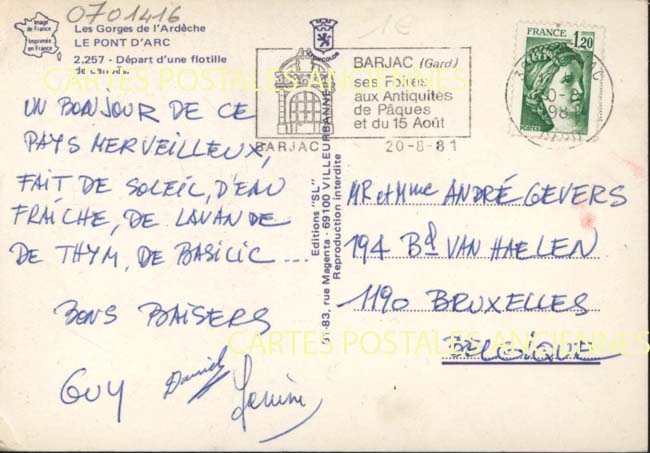 0701416
1€
Image
de France
Imprimée
en France
Les Gorges de l'Ardèche
LE PONT D'ARC
2.257 - Départ d'une flotille
de canoës
COMBICOLOR
BARJAC (Gard)
ses Foires
aux Antiquités
de Pâques
et du 15 Août
BARJAC
20-8-81
FRANCE
1,20
POSTES
UN BONJOUR DE CE
PAYS MERVEILLEUX,
FAIT DE SOLEIL, D'EAU
FRAÎCHE, DE LAVANDE
DE THYM, DE BASILIC ...
BONS BAISERS
GUY Daniel
Editions "SL"
81-83, rue Magenta - 69100 VILLEURBANNE
Reproduction interdite
MR et Mme ANDRÉ GEVERS
194 Bd VAN HAELEN
1190 BRUXELLES
BELGIQUE
CARTES POSTALES ANCIENNES
CARTES POSTALES ANCIENNES